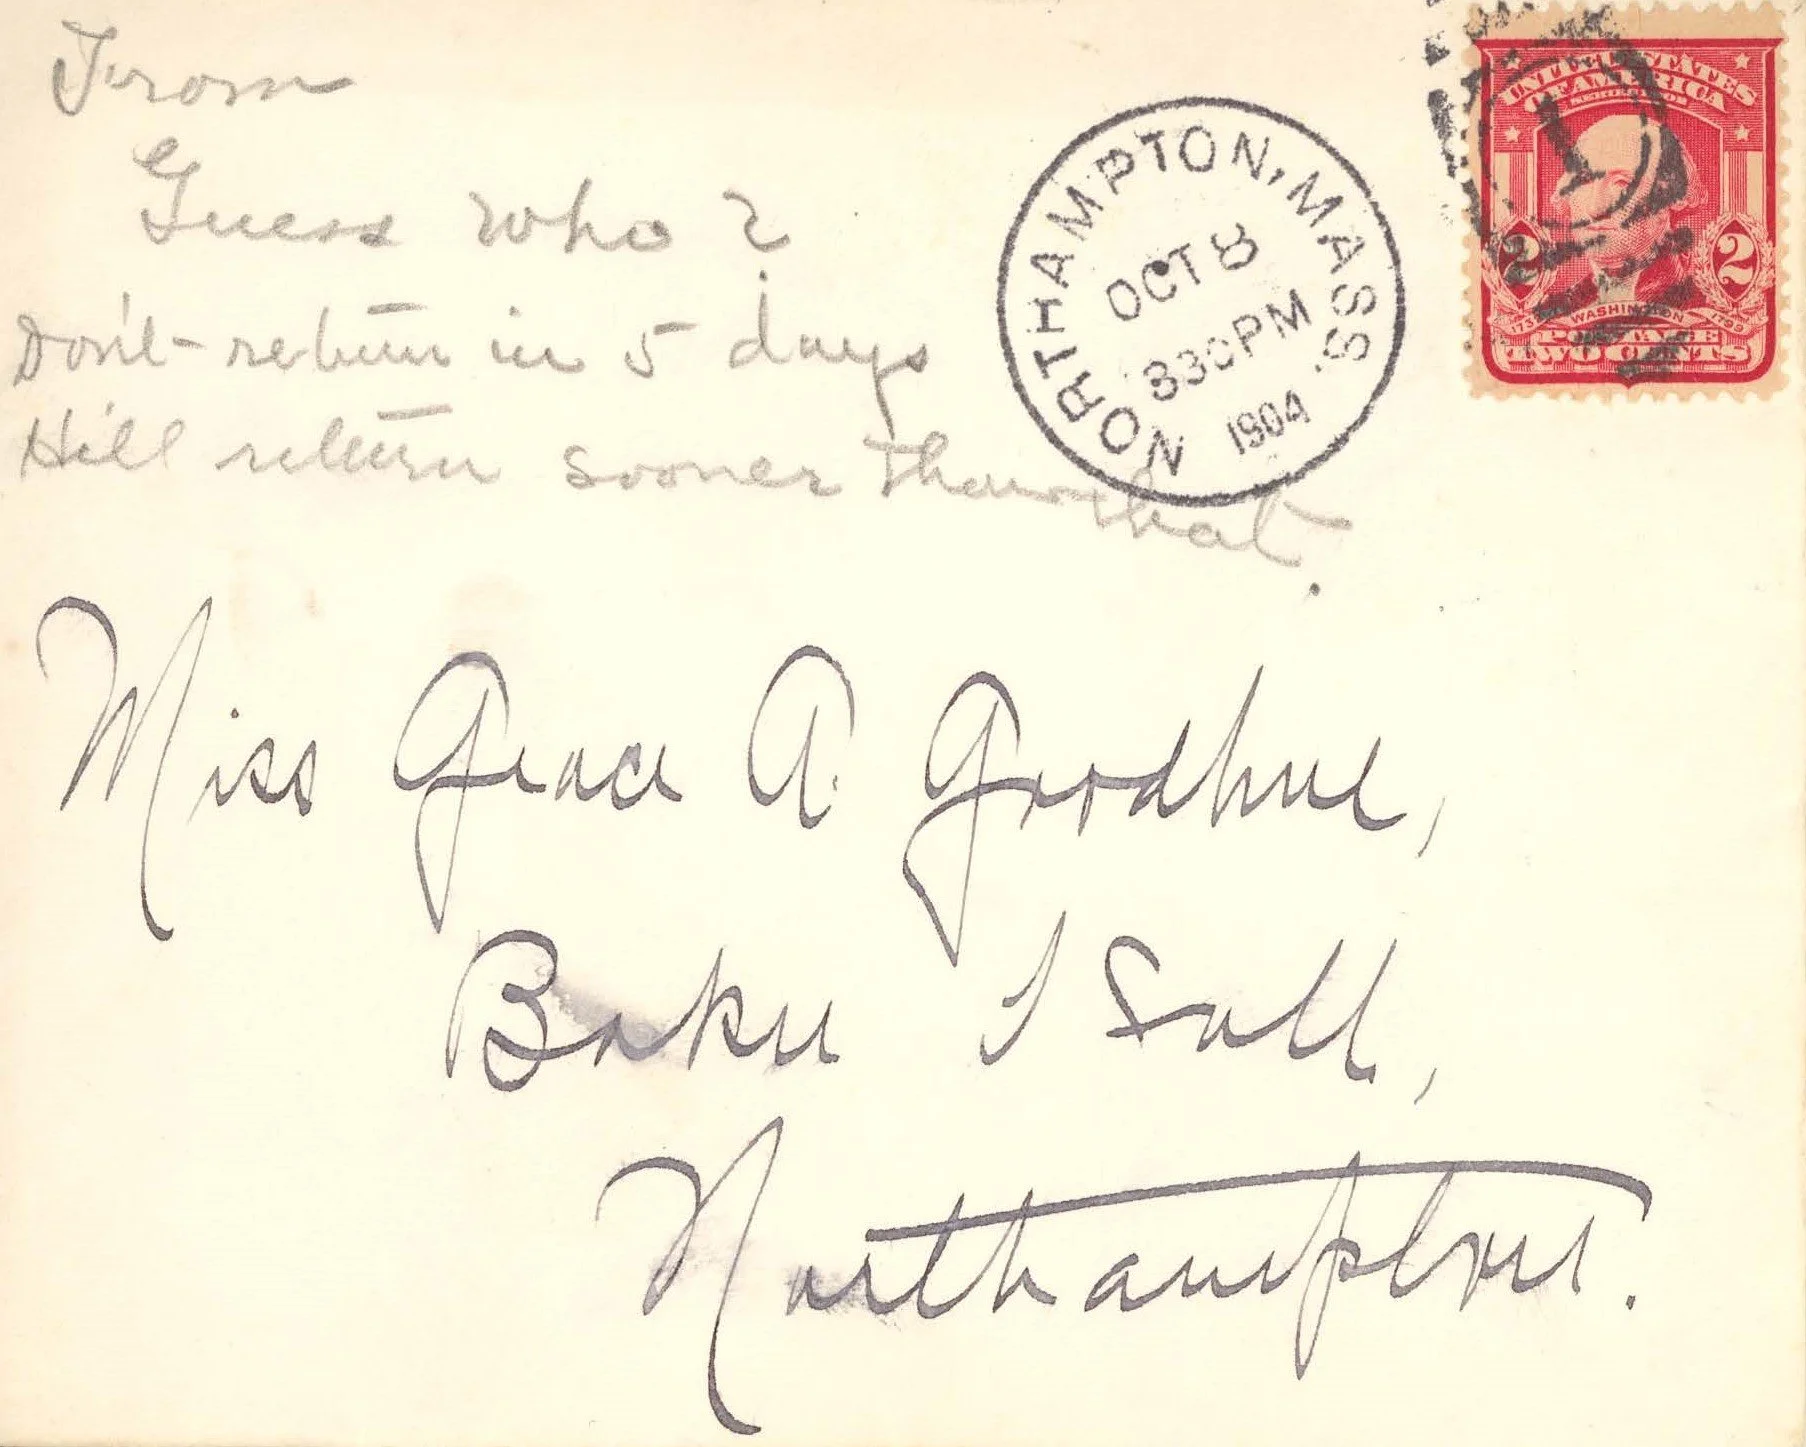 From
Guess who?
Don't return in 5 days
He'll return sooner than that.
NORTHAMPTON, MASS.
OCT 8
830PM
1904
UNITED STATES
OF AMERICA
SERIES 1902
1
2 2
1732 WASHINGTON 1799
POSTAGE
TWO CENTS
Miss Grace A. Goodhue,
Baker Hall,
Northampton.